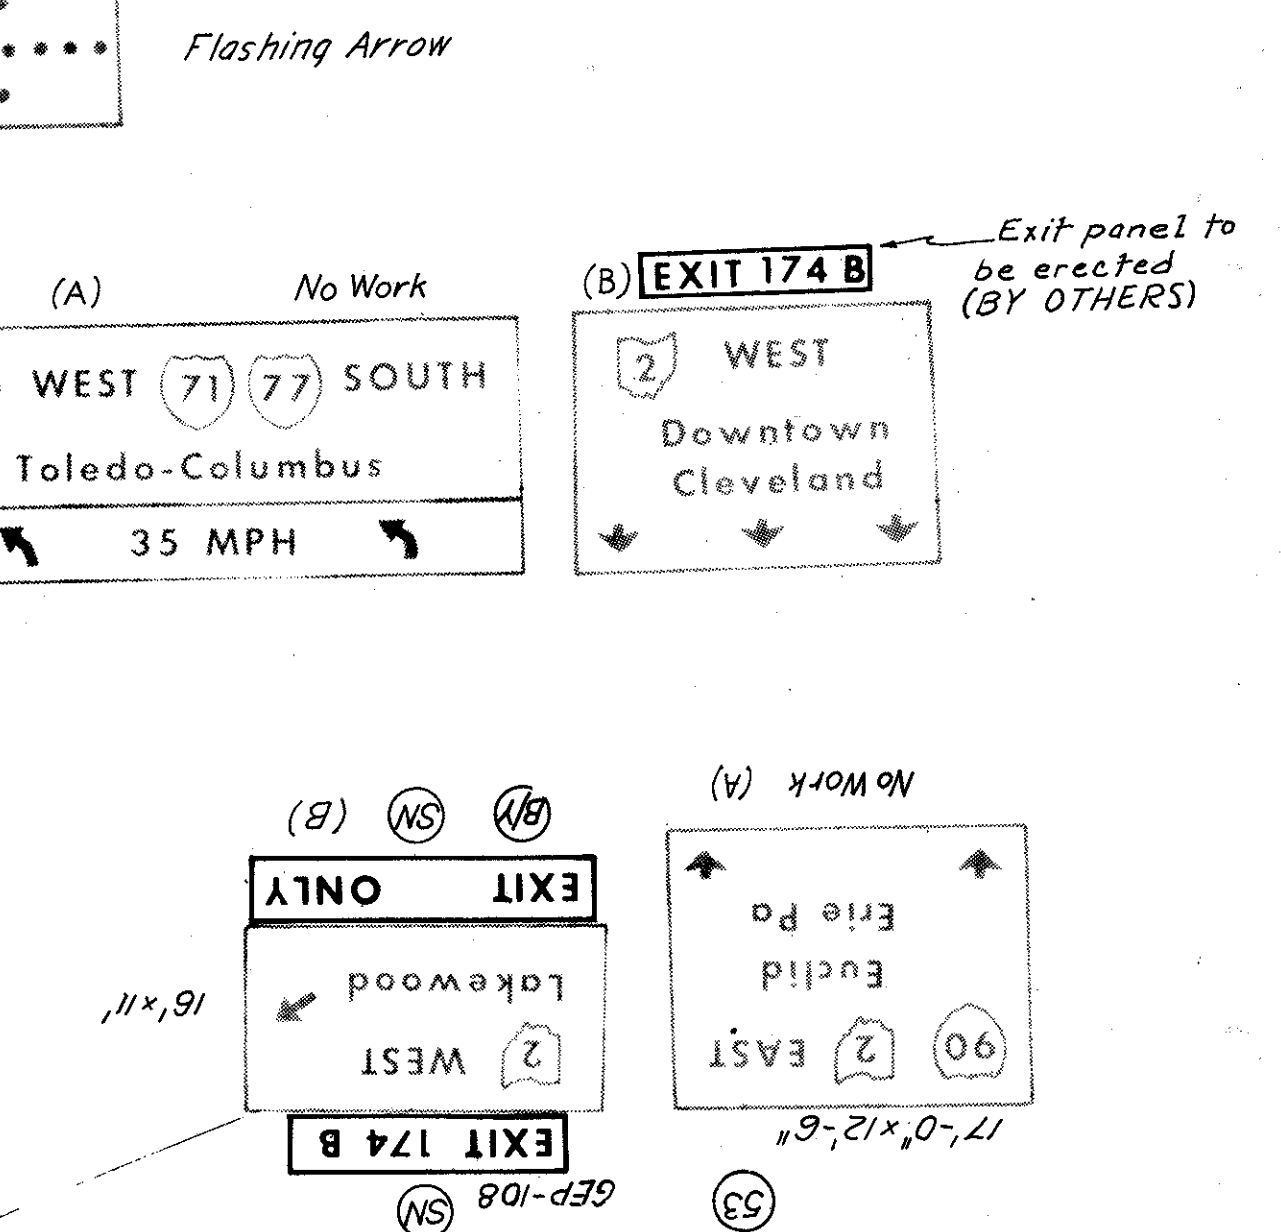 Flashing Arrow
(A) No Work
WEST 71 77 SOUTH
Toledo-Columbus
35 MPH
(B) EXIT 174 B
Exit panel to
be erected
(BY OTHERS)
2 WEST
Downtown
Cleveland
53
17'-0"x12'-6"
90 2 EAST
Euclid
Erie Pa
No Work (A)
GEP-108 SN
EXIT 174 B
2 WEST
Lakewood
16'x11'
EXIT ONLY
B/Y SN (B)